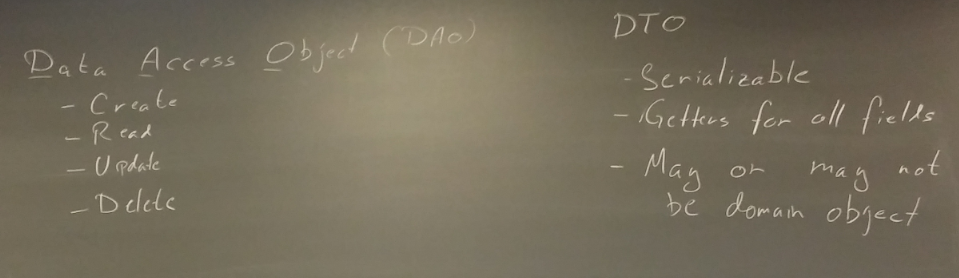 Data Access Object (DAO)
- Create
- Read
- Update
- Delete
DTO
- Serializable
- Getters for all fields
- May or may not
be domain object